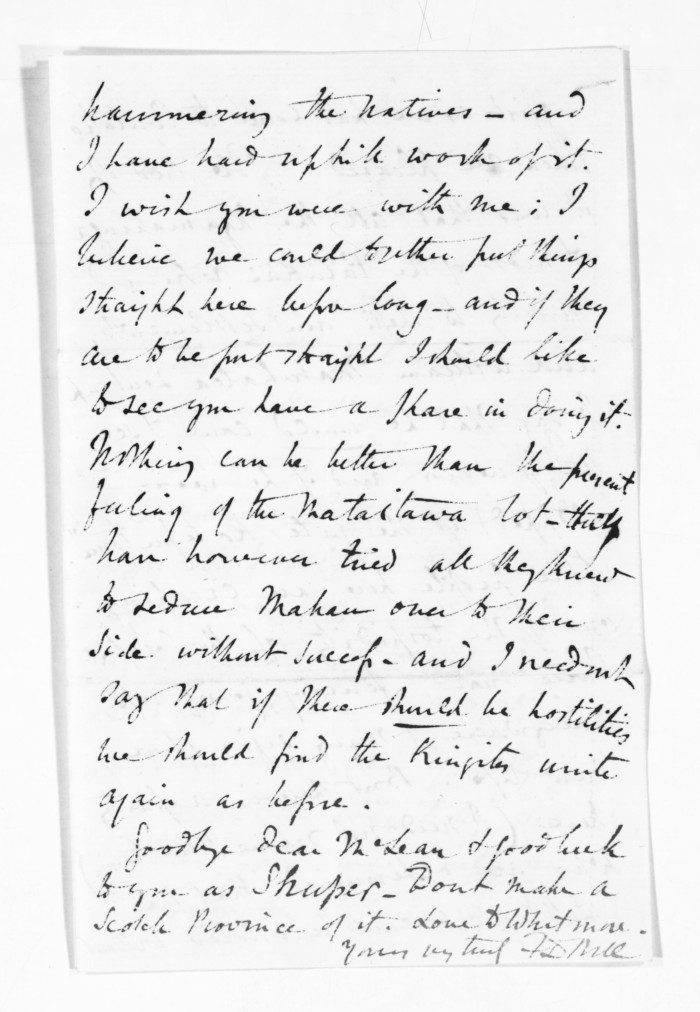 hammering the natives - and
I have had uphill work of it.
I wish you were with me; I
believe we could together put things
straight here before long - and if they
are to be put straight I should like
to see you have a share in doing it.
Nothing can be better than the present
feeling of the Mataitawa lot - they
have however tried all they knew
to seduce Mahau over to their
side without success - and I need not
say that if there should be hostilities
we should find the Kingites unite
again as before.
Goodbye dear McLean & good luck
to you as Shuper - Dont make a
Scotch Province of it. Love to Whitmore.
Yours very truly FD Bell